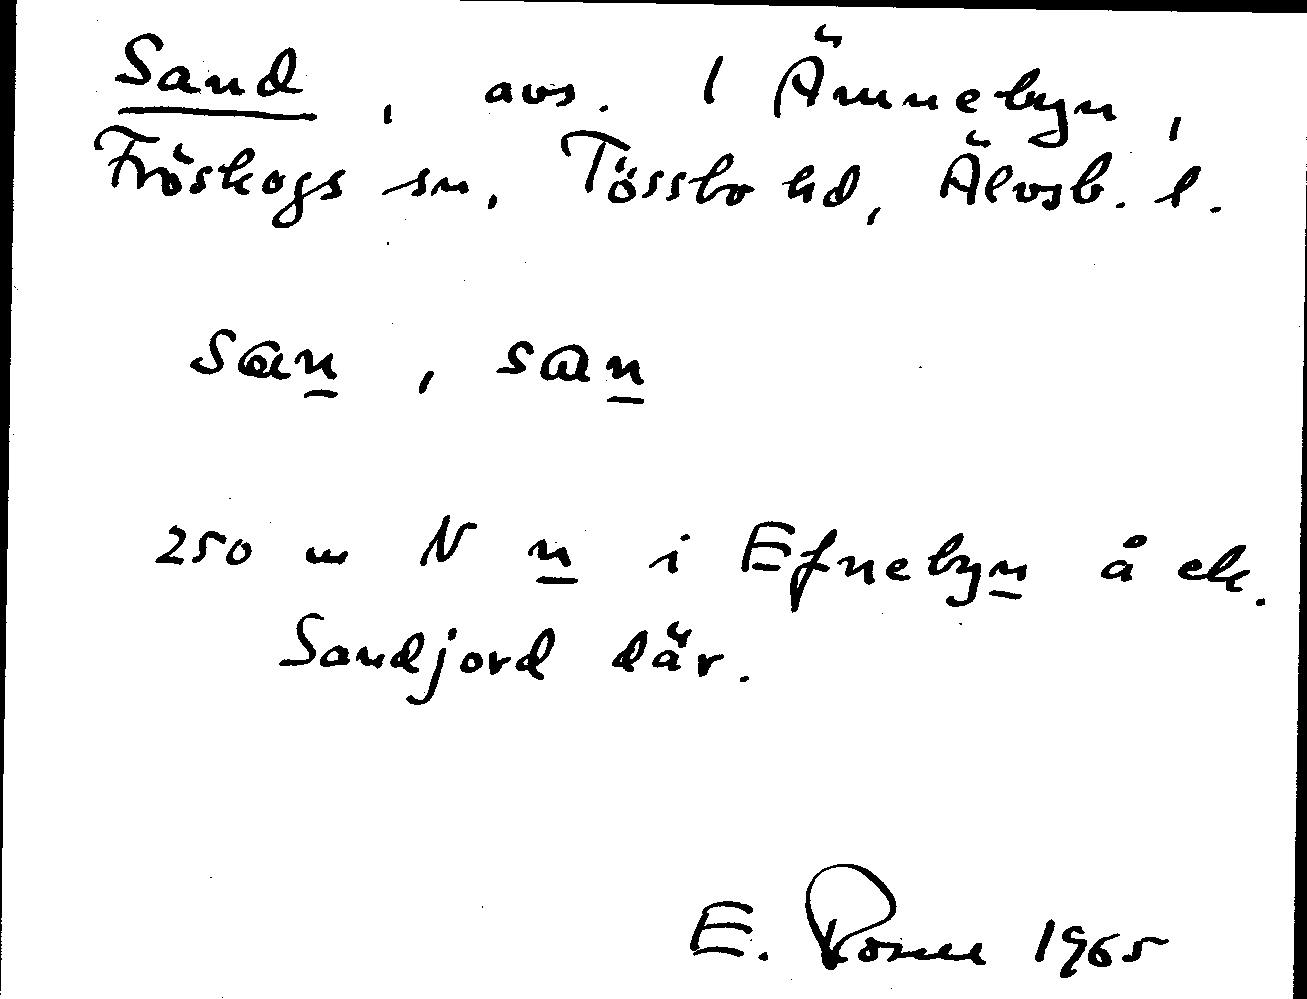 Sand, avs. 1 Ämnebyn,
Fröskogs sn, Tössbo hd, Älvsb. l.
san, san
250 m N n i Efnebyn å ek.
Sandjord där.
E. 1965